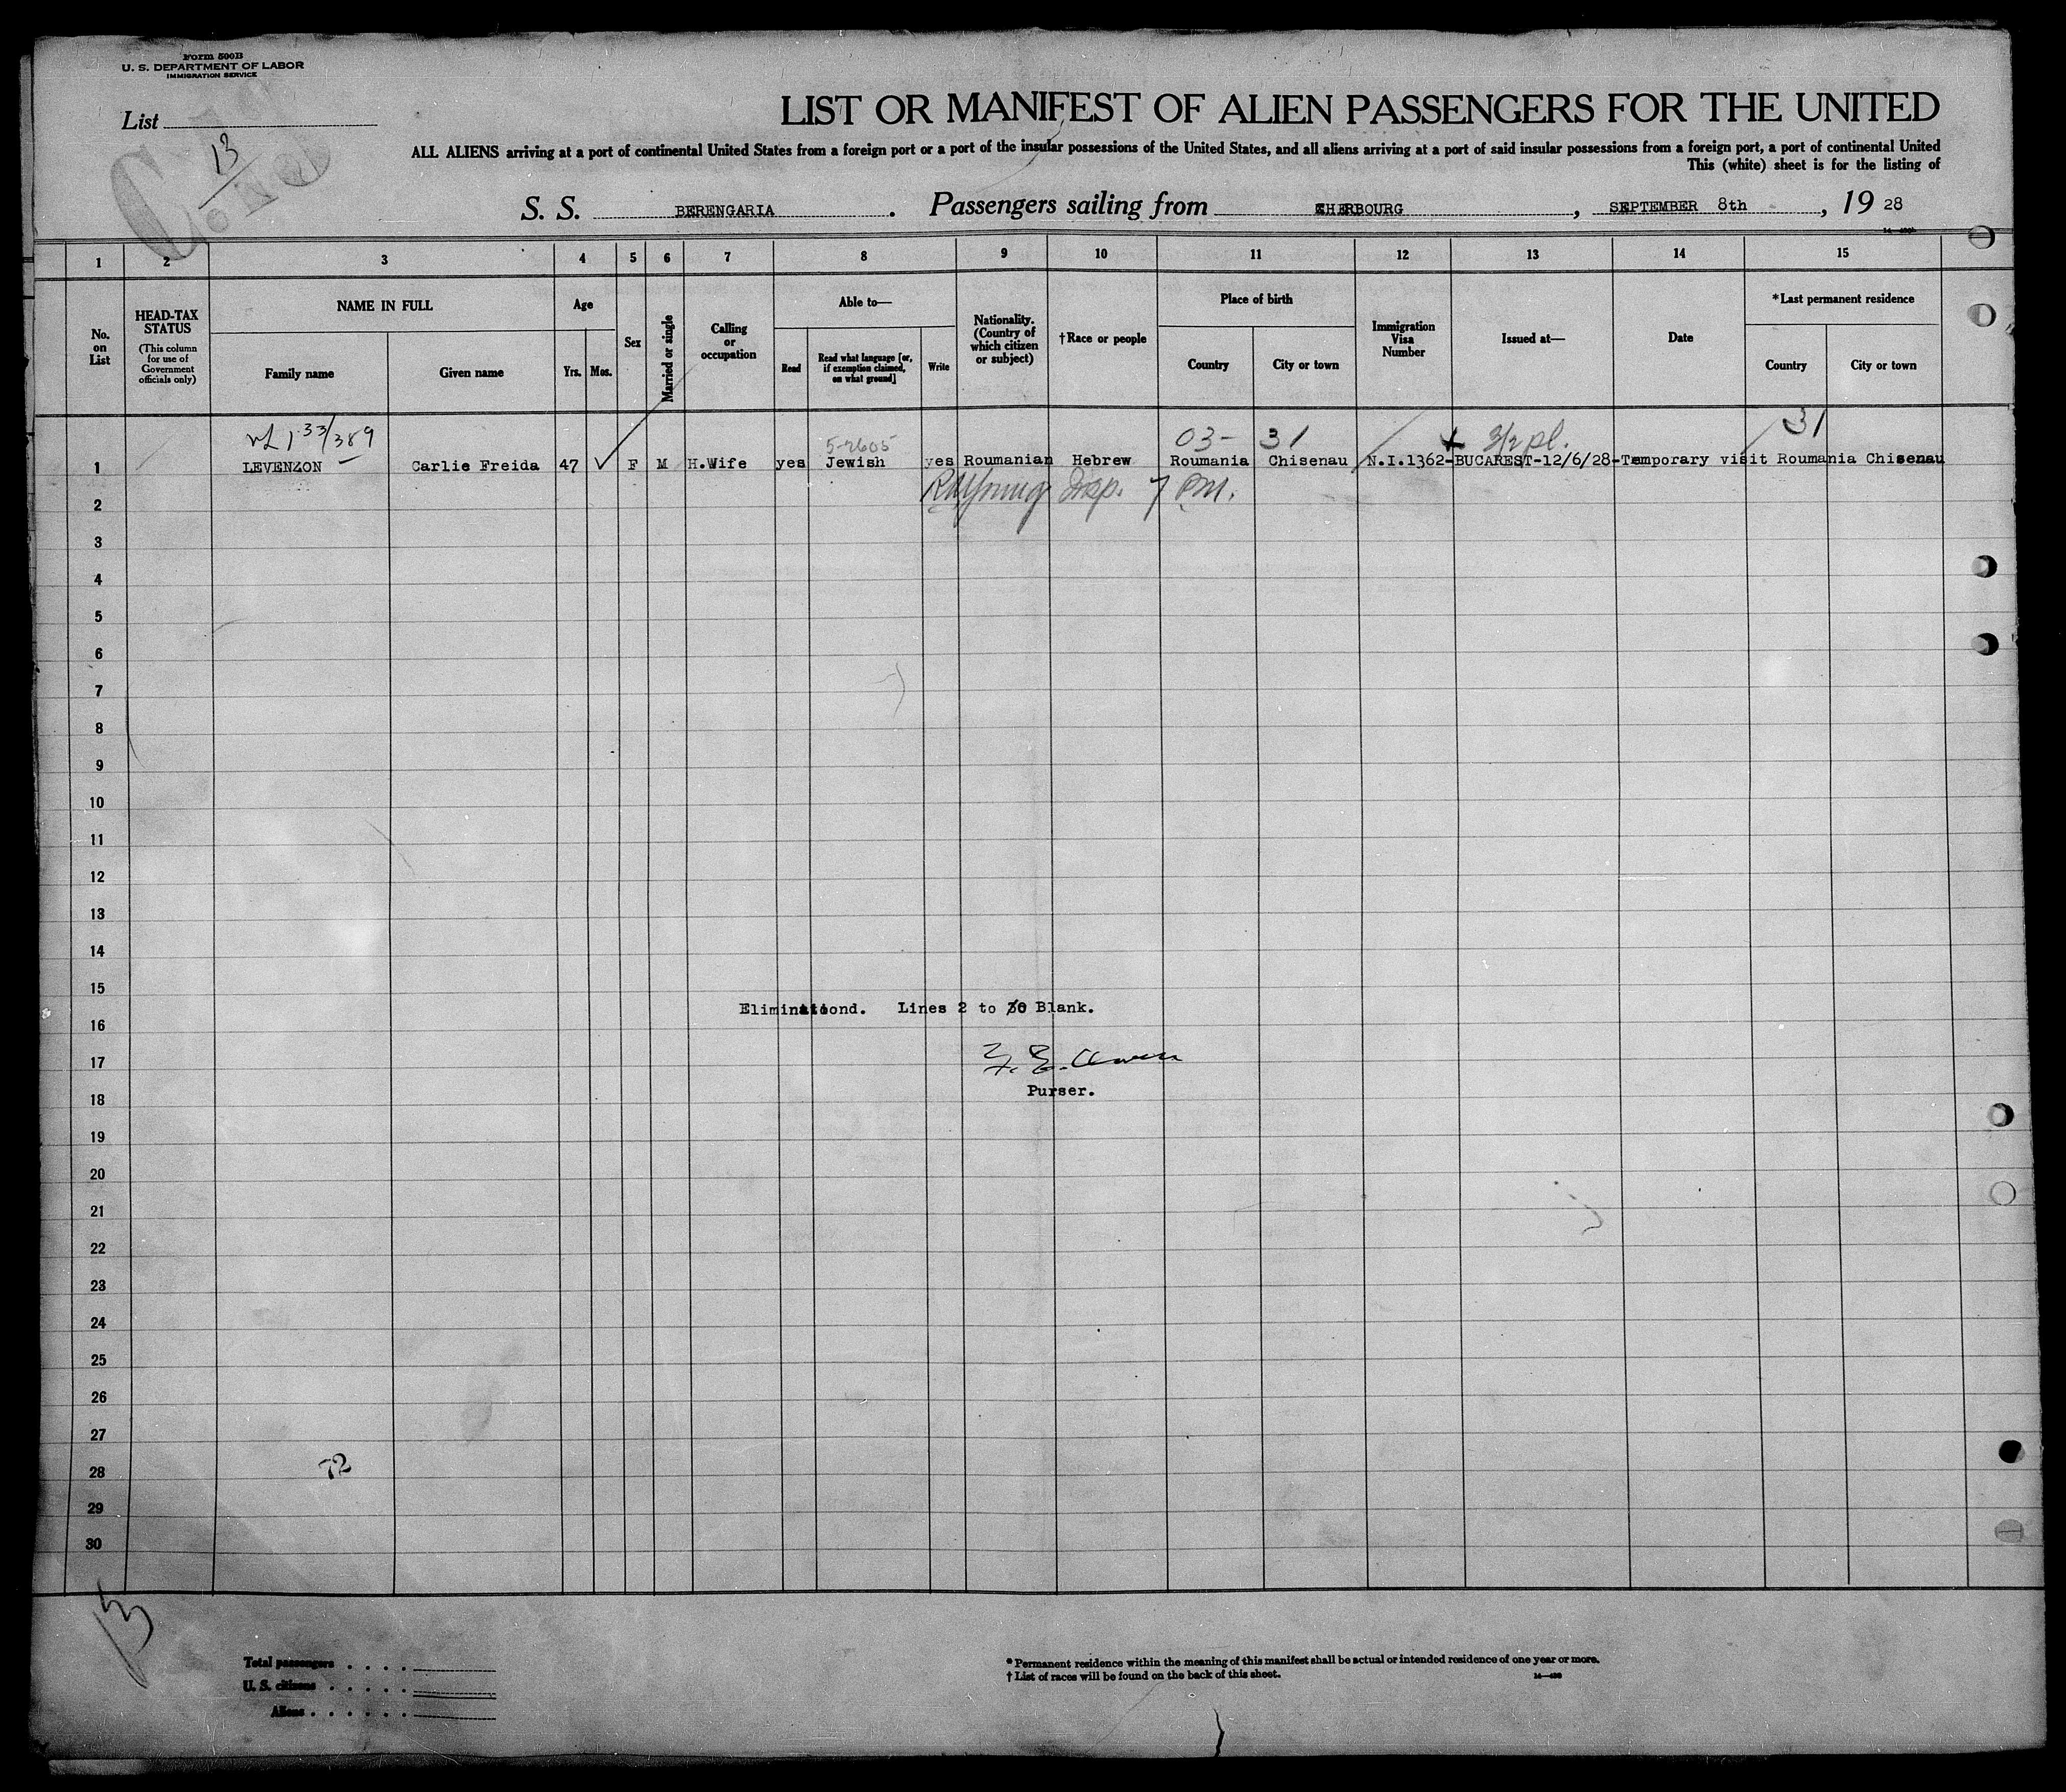 Form 500B
U. S. DEPARTMENT OF LABOR
IMMIGRATION SERVICE
List
13
LIST OR MANIFEST OF ALIEN PASSENGERS FOR THE UNITED
ALL ALIENS arriving at a port of continental United States from a foreign port or a port of the insular possessions of the United States, and all aliens arriving at a port of said insular possessions from a foreign port, a port of continental United
This (white) sheet is for the listing of
S. S. BERENGARIA. Passengers sailing from CHERBOURG, SEPTEMBER 8th, 19 28
1 2 3 4 5 6 7 8 9 10 11 12 13 14 15
No. on List
HEAD-TAX STATUS (This column for use of Government officials only)
NAME IN FULL
Family name Given name
Age
Yrs. Mos.
Sex
Married or single
Calling or occupation
Able to—
Read
Read what language [or, if exemption claimed, on what ground]
Write
Nationality. (Country of which citizen or subject)
†Race or people
Place of birth
Country City or town
Immigration Visa Number
Issued at—
Date
*Last permanent residence
Country City or town
133/389 5-2605 03- 31 31
1 LEVENZON Carlie Freida 47 F M H.Wife yes Jewish yes Roumanian Hebrew Roumania Chisenau N.I.1362-BUCAREST-12/6/28-Temporary visit Roumania Chisenau
Insp. 7 PM.
2
3
4
5
6
7
8
9
10
11
12
13
14
15
Lines 2 to 30 Blank.
16
17
Purser.
18
19
20
21
22
23
24
25
26
27
72
28
29
30
13
Total passengers
U. S. citizens
Aliens
* Permanent residence within the meaning of this manifest shall be actual or intended residence of one year or more.
† List of races will be found on the back of this sheet.